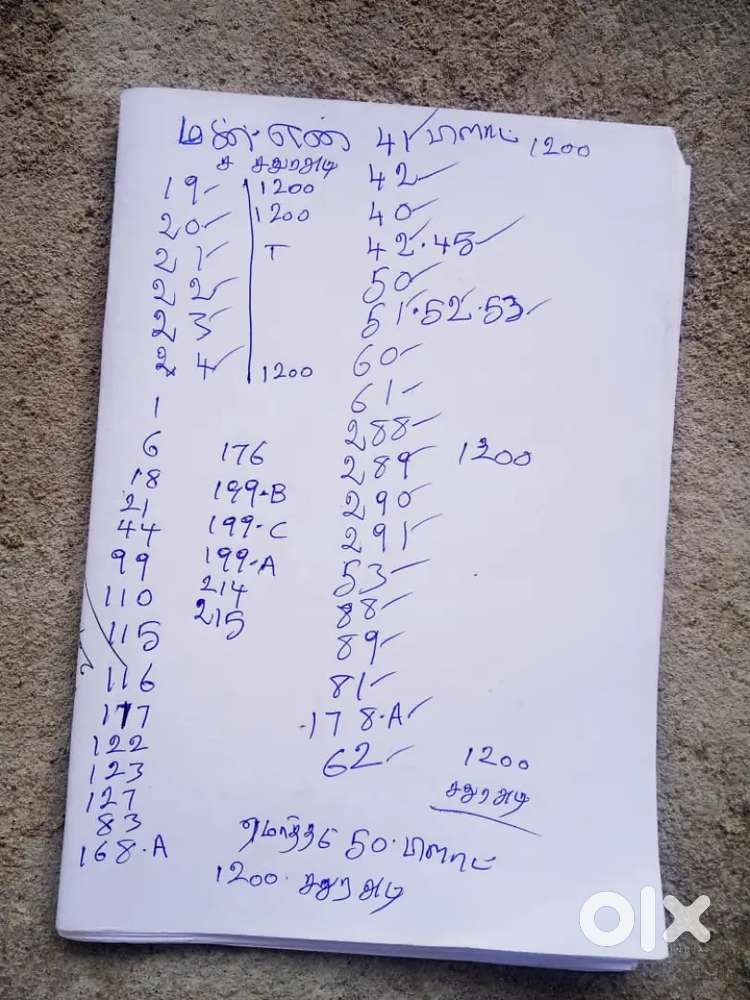 மனை எண் 41 பிளாட் 1200
ச சதுரஅடி
19 1200
20 1200
21
22
23
24 1200
42
40
42.45
50
51.52.53
60
61
288
289 1200
290
291
53
88
89
81
178.A
62 1200
சதுரஅடி
1
6
18
21
44
99
110
115
116
117
122
123
127
83
168.A
176
199-B
199-C
199-A
214
215
மொத்தம் 50.பிளாட்
1200.சதுரஅடி
olx